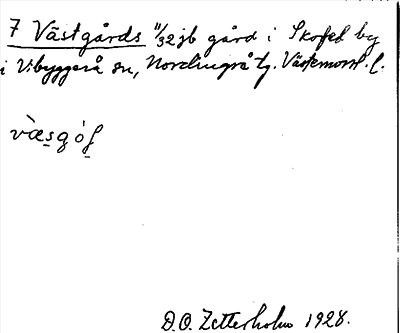 7 Västgårds 11/32 jb gård i Skofed by
i Vibyggerå sn, Nordingrå tg. Västernorrl. l.
D.O. Zetterholm 1928.